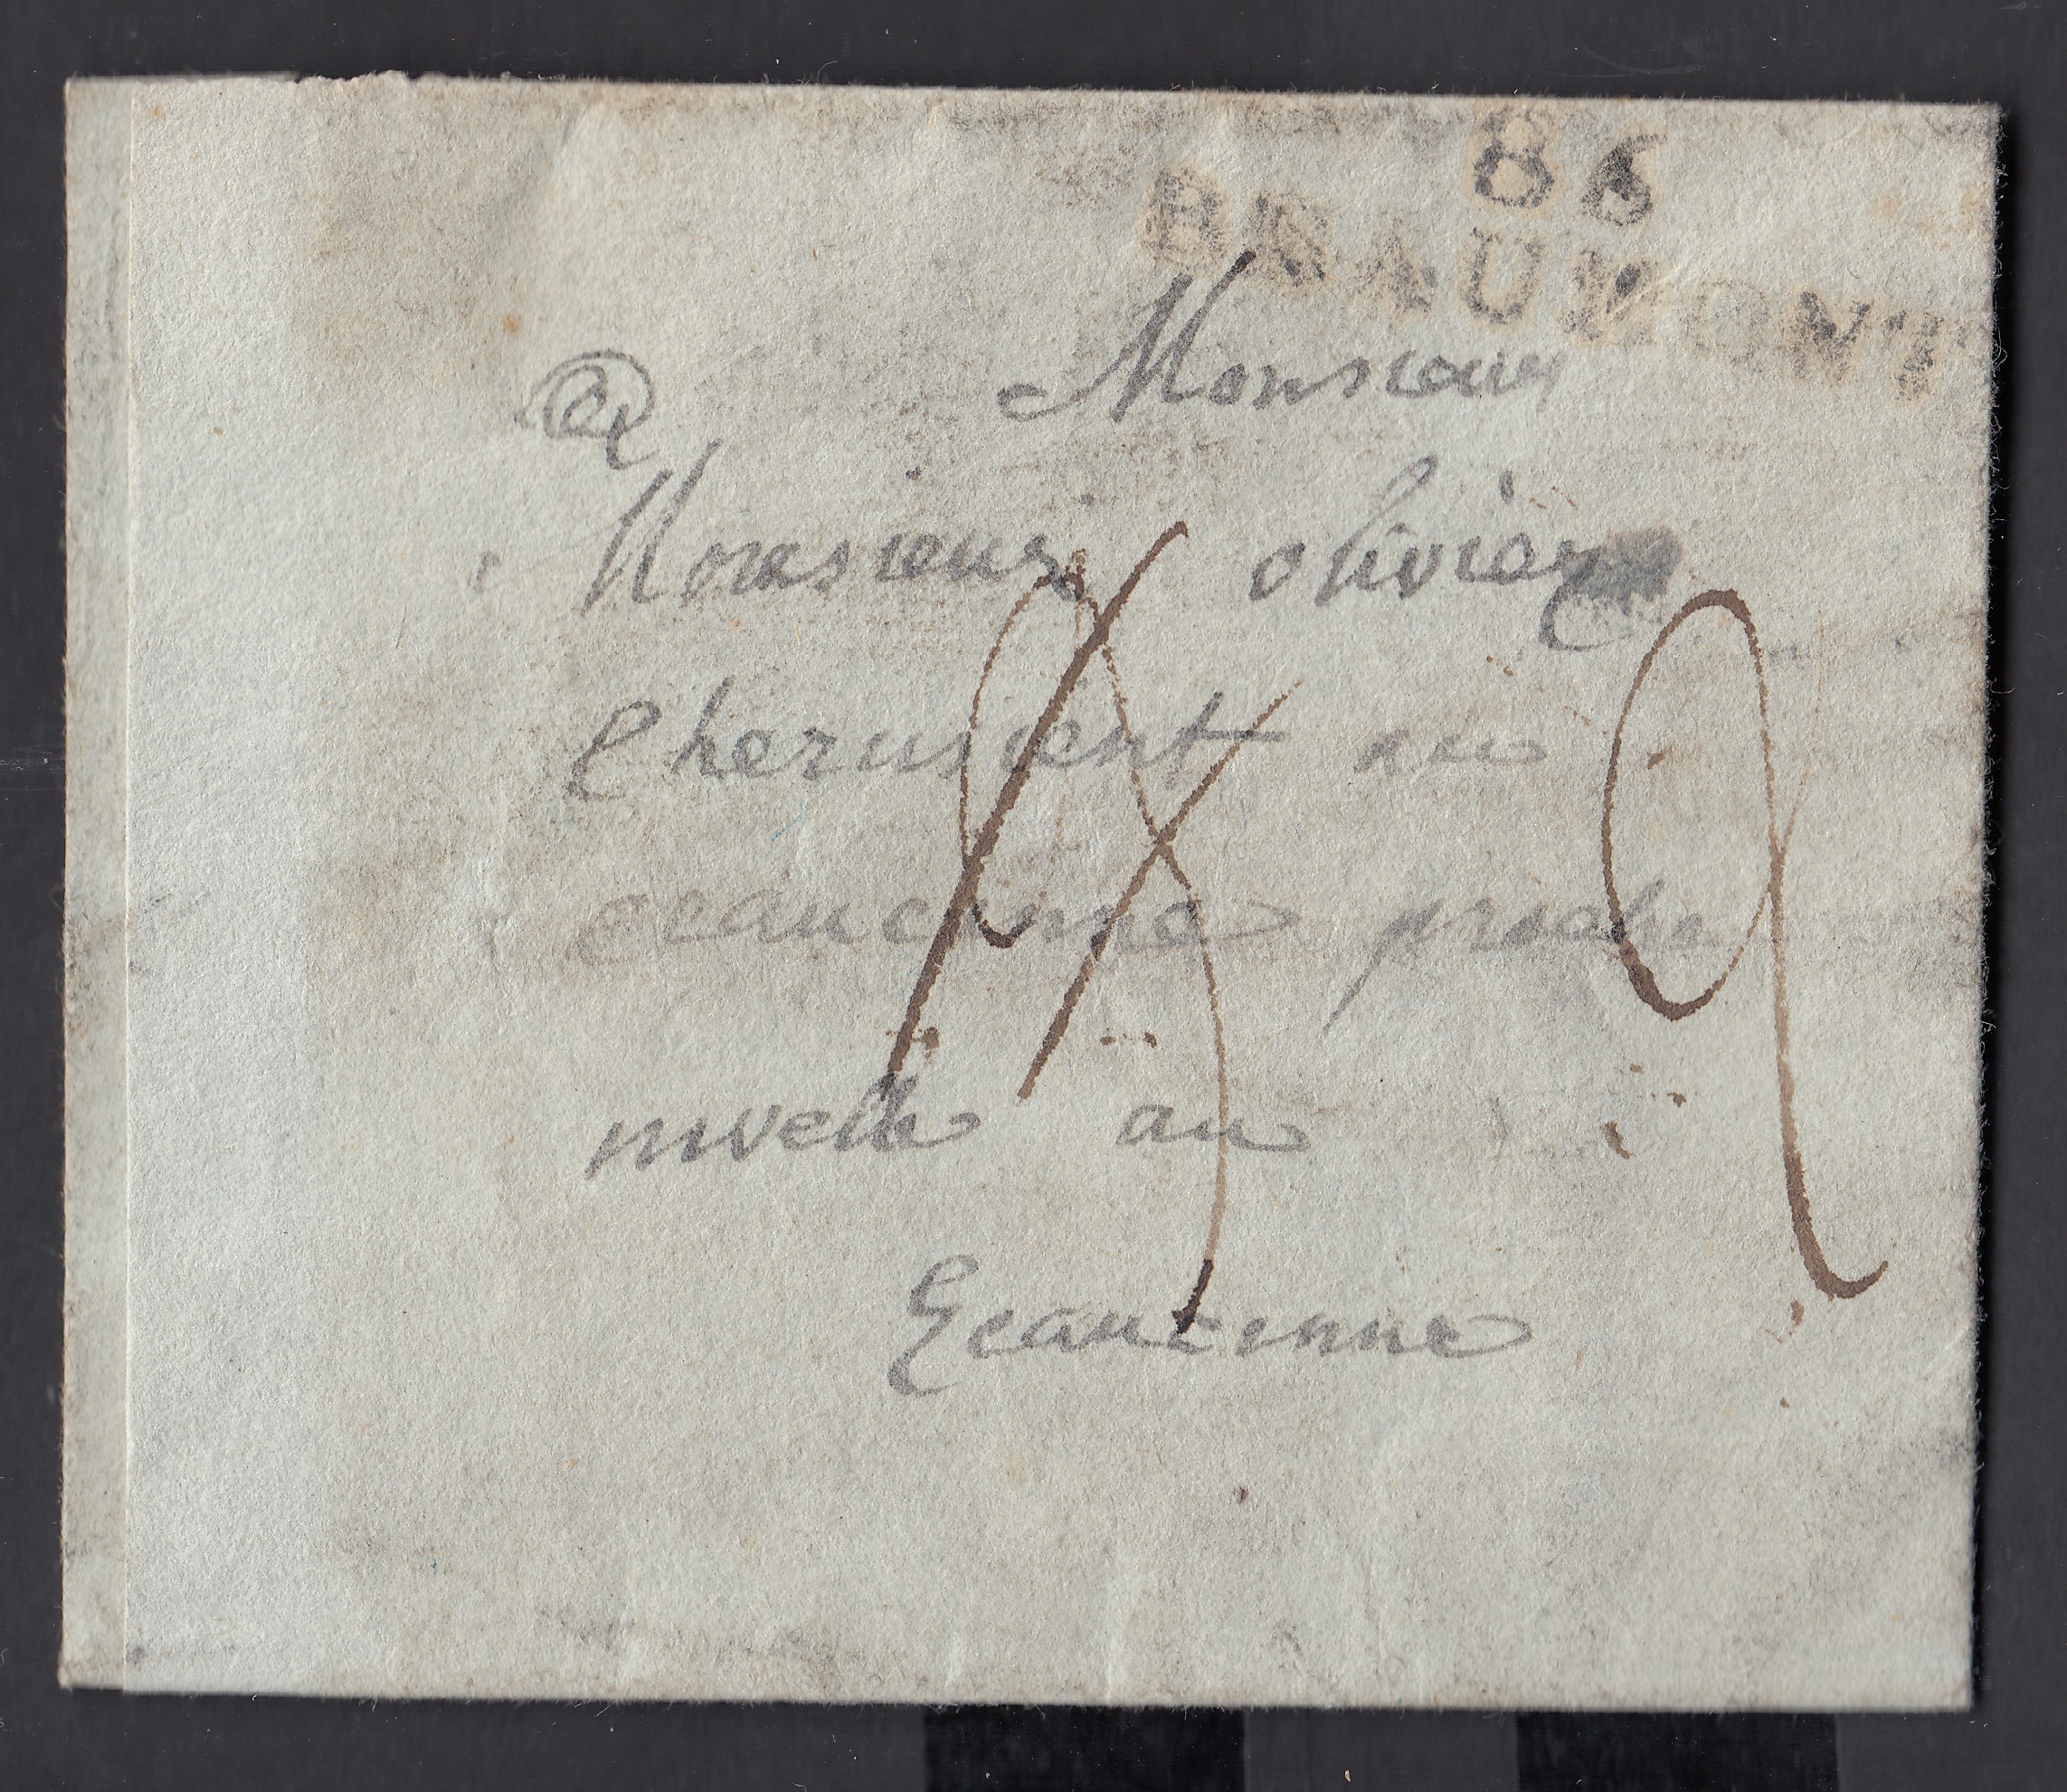 86
BEAUMONT
Monsieur
a
Monsieur olivier
Cherusient au
ecaucinne proche
nivelle au
Ecaucinne